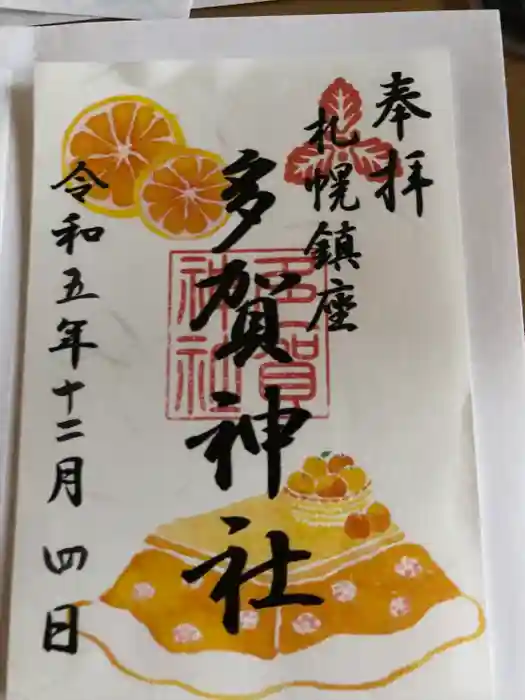 奉拝
札幌鎮座
多賀神社
多賀
神社
令和五年十二月四日